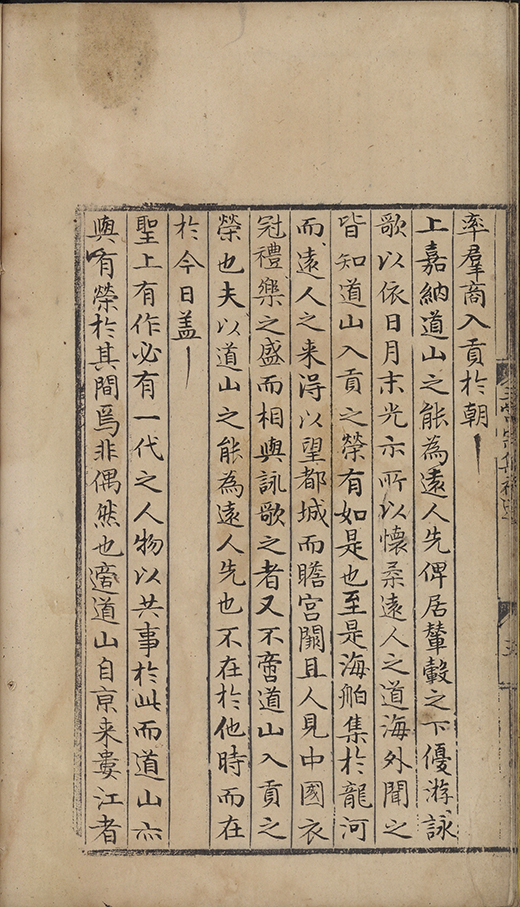 率羣商入貢於朝
上嘉納道山之能為遠人先俾居輦轂之下優游詠
歌以依日月末光亦所以懷柔遠人之道海外聞之
皆知道山入貢之榮有如是也至是海舶集於龍河
而遠人之来得以望都城而瞻宮闕且人見中國衣
冠禮樂之盛而相與詠歌之者又不啻道山入貢之
榮也夫以道山之能為遠人先也不在於他時而在
於今日盖
聖上有作必有一代之人物以共事於此而道山亦
與有榮於其間焉非偶然也啻道山自京来婁江者